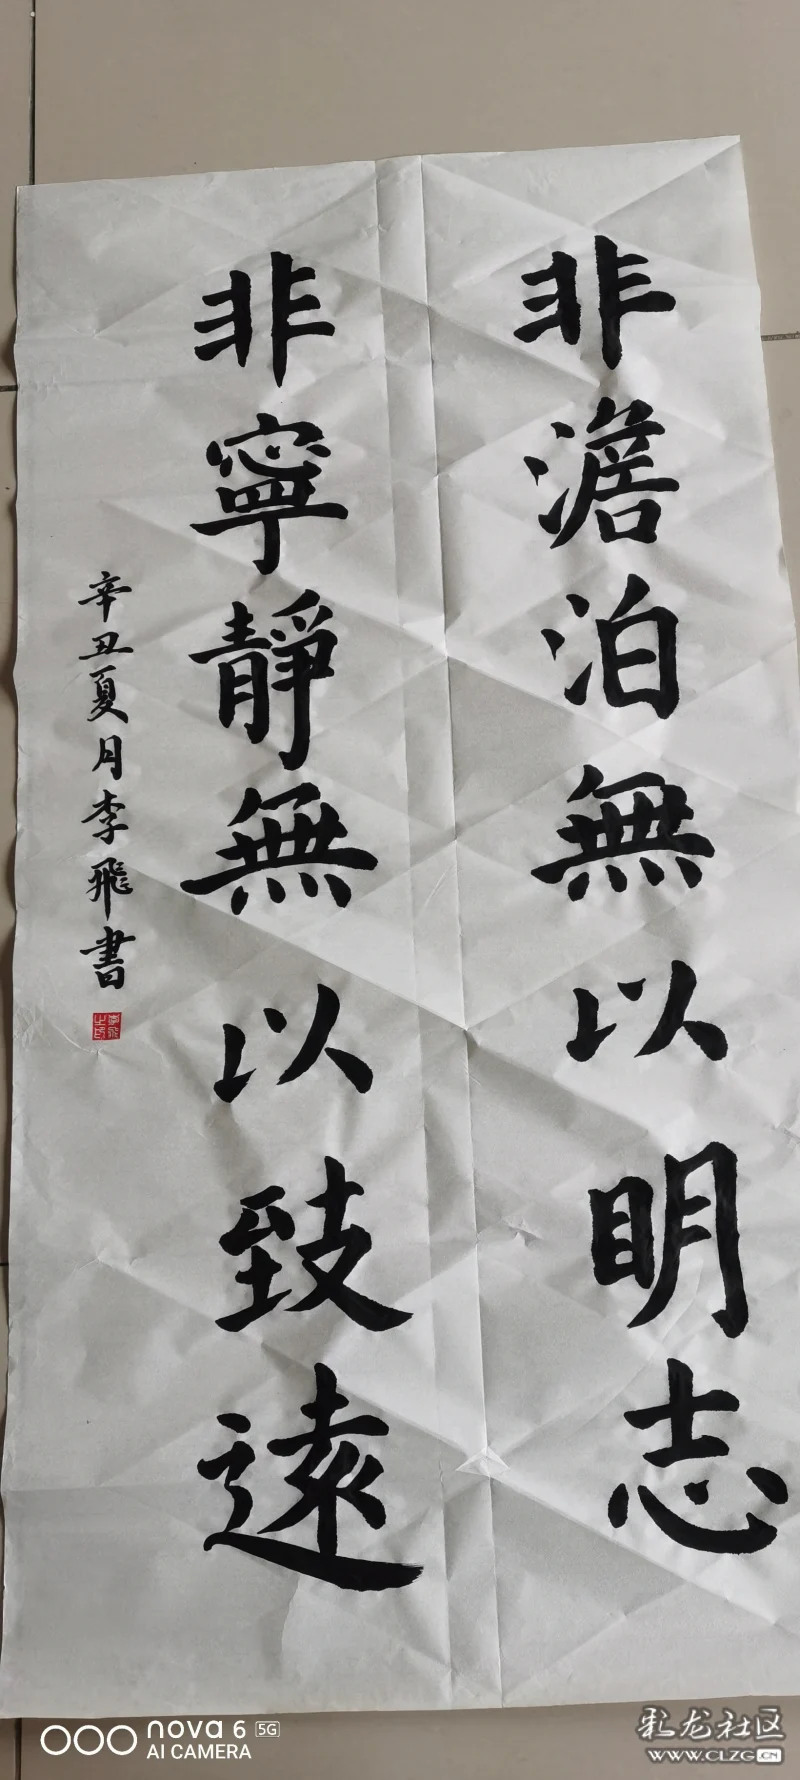 非澹泊無以明志
非寧靜無以致遠
辛丑夏月李飛書
nova 6 5G
AI CAMERA
彩龙社区
www.CLZG.CN